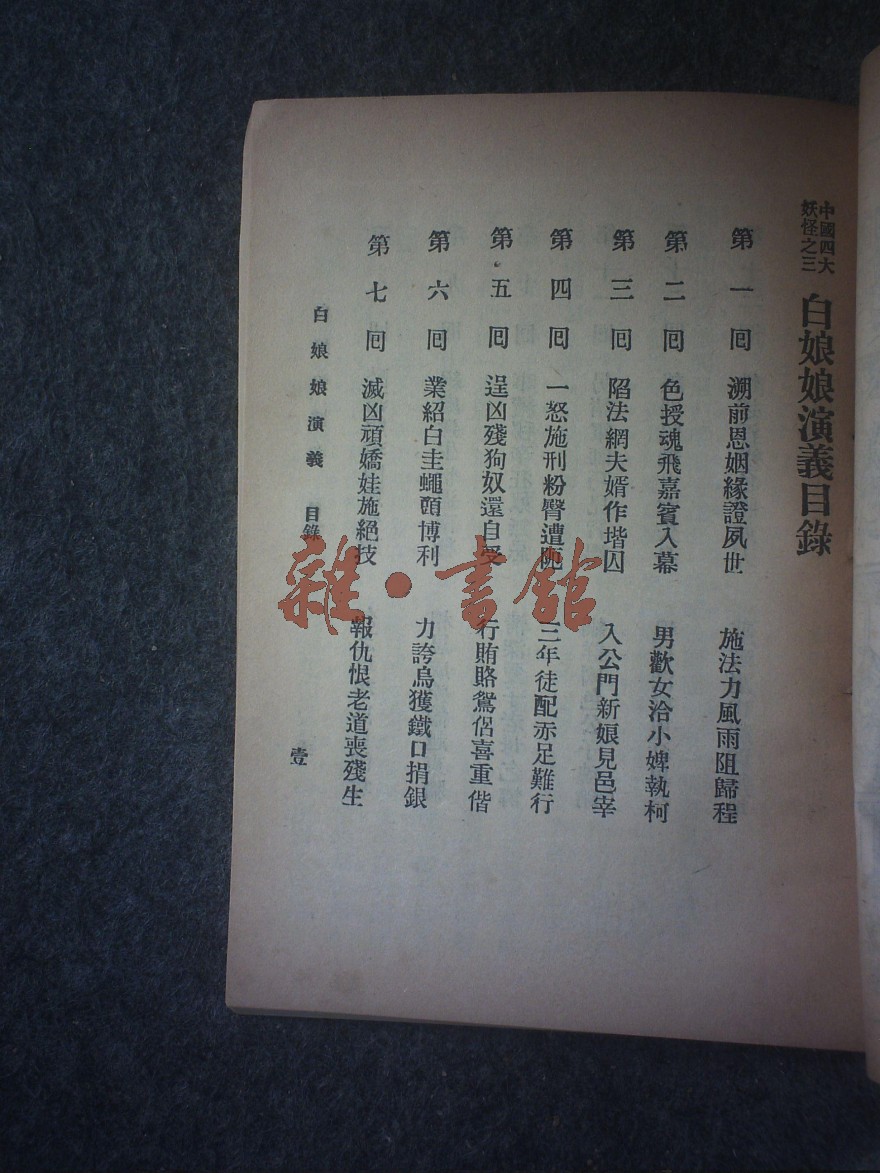 中國四大
妖怪之三
白娘娘演義目錄
第一回 溯前恩姻緣證夙世 施法力風雨阻歸程
第二回 色授魂飛嘉賓入幕 男歡女洽小婢執柯
第三回 陷法網夫婿作堦囚 入公門新娘見邑宰
第四回 一怒施刑粉臂遭阨 三年徒配赤足難行
第五回 逞凶殘狗奴還自受 行賄賂鴛侶喜重偕
第六回 業紹白圭蠅頭博利 力誇烏獲鐵口捐銀
第七回 滅凶頑嬌娃施絕技 報仇恨老道喪殘生
白娘娘演義 目錄 壹
雜·書館